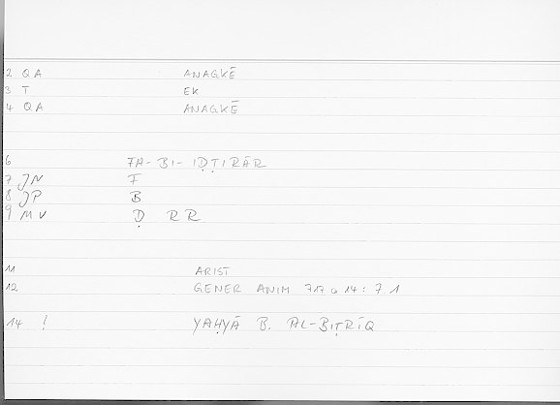 2 QA ANAGKĒ
3 T EK
4 QA ANAGKĒ
6 FA-BI-IḌṬIRĀR
7 JN F
8 JP B
9 MV Ḍ RR
11 ARIST
12 GENER ANIM 717 a 14 : 7 1
14 ! YAḤYĀ B. AL-BIṬRĪQ